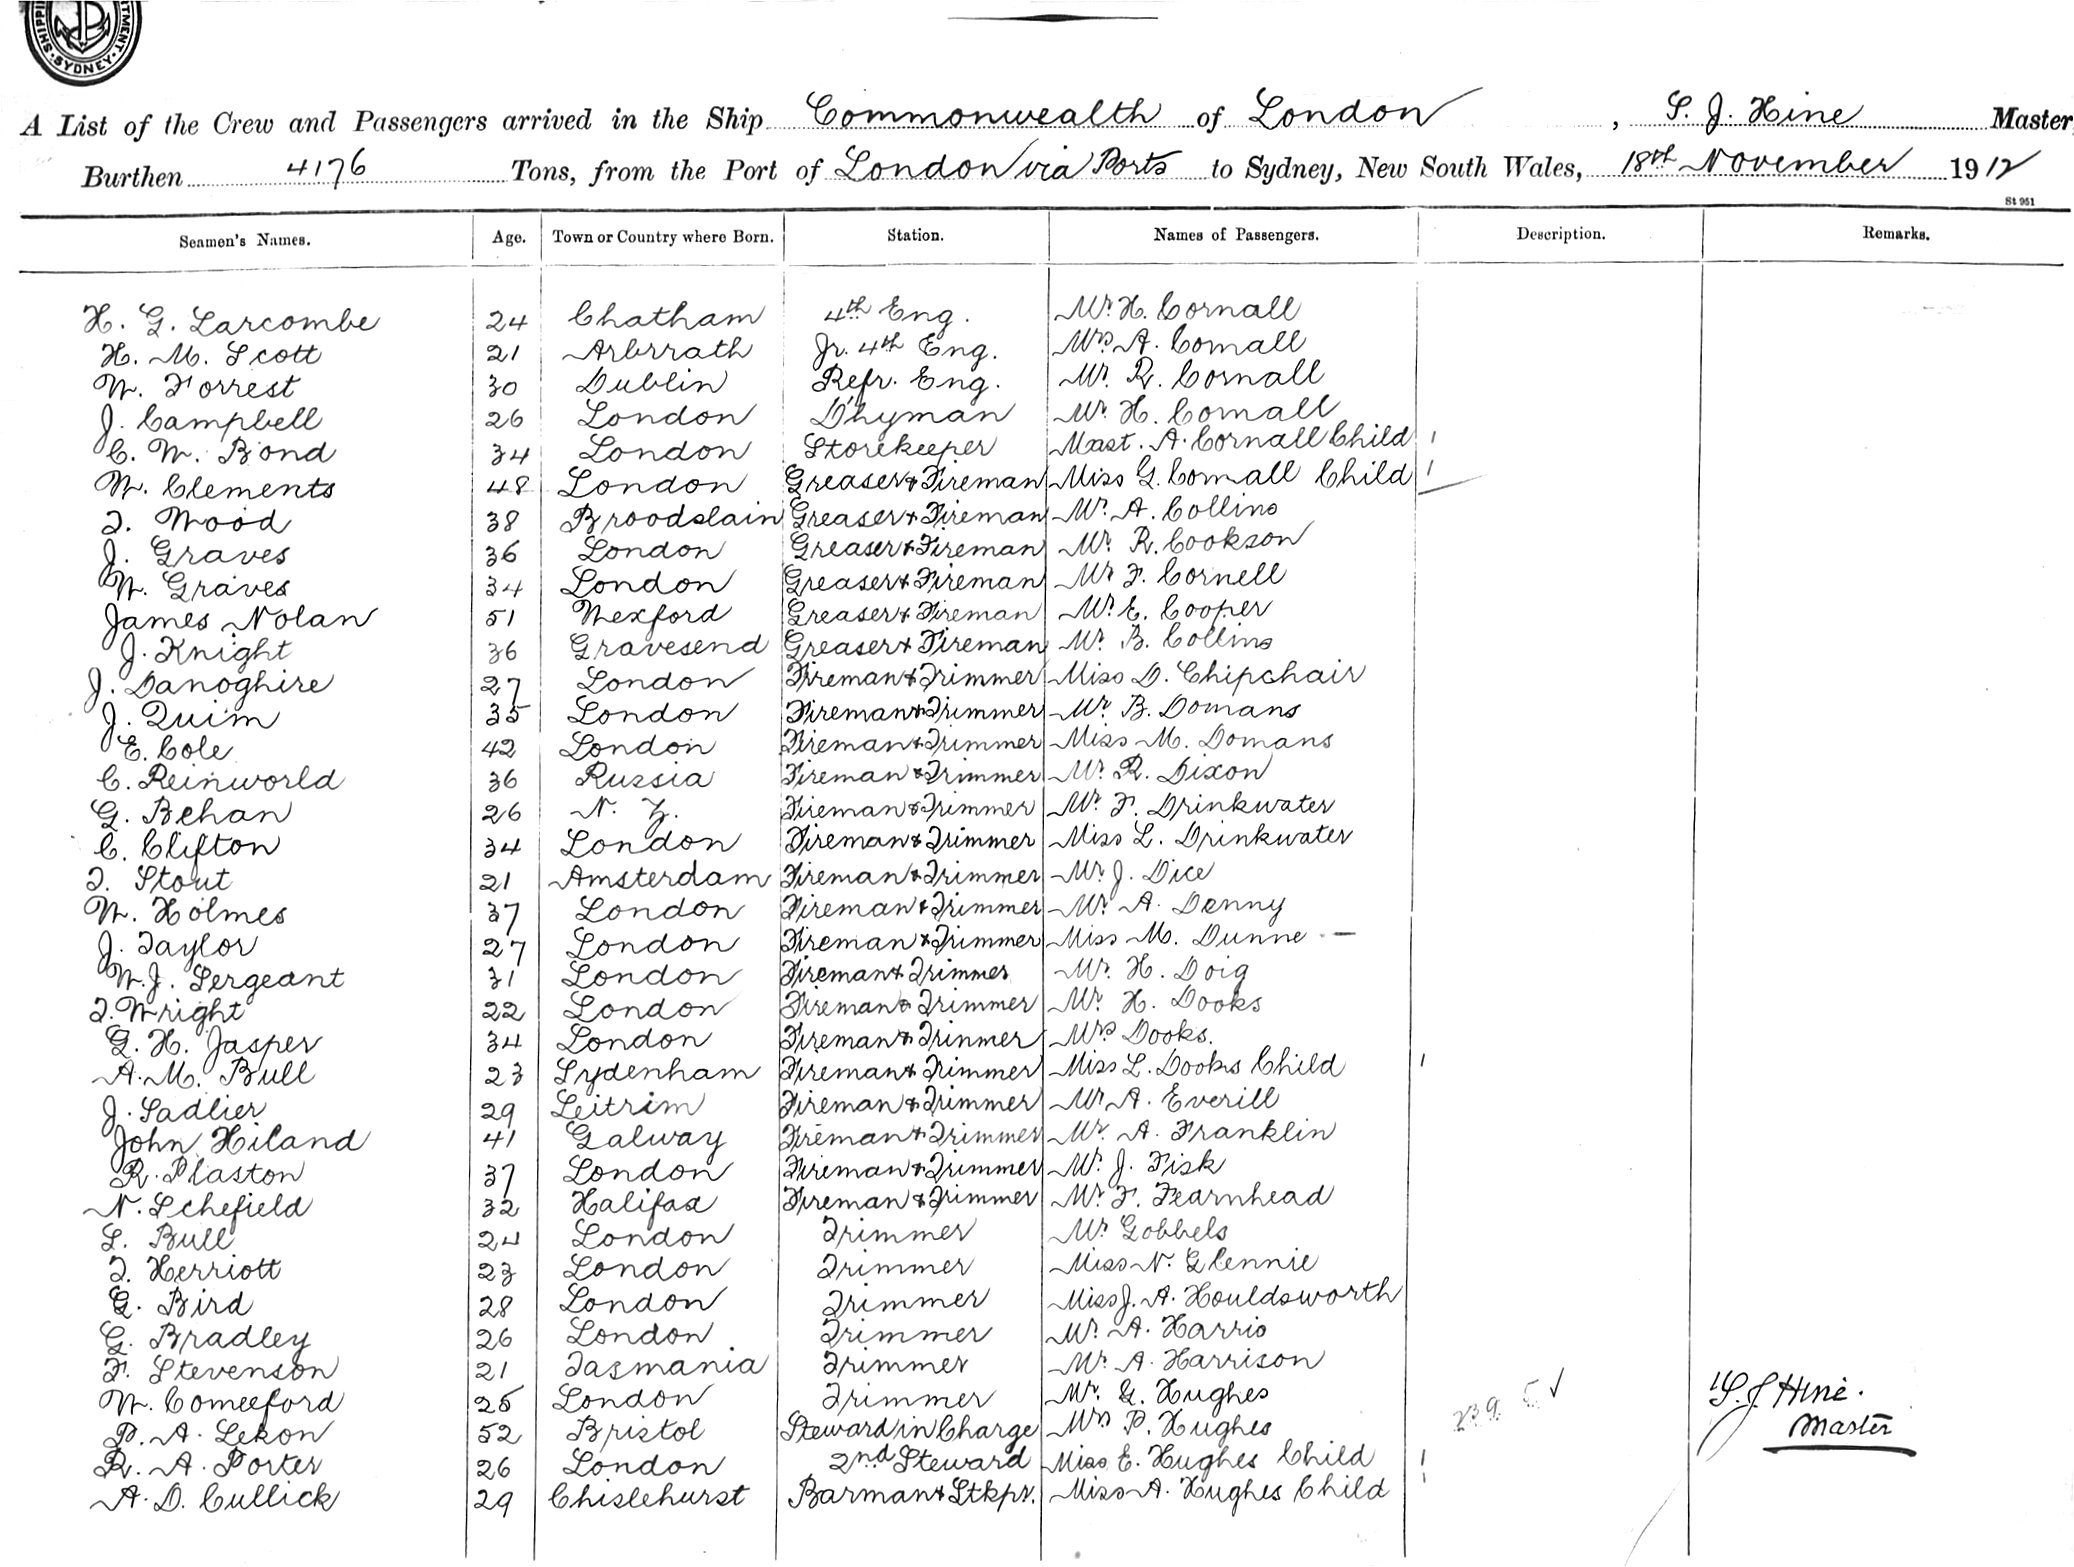 SHIPPI RTMENT. SYDNEY.
A List of the Crew and Passengers arrived in the Ship Commonwealth of London, S. J. Hine Master
Burthen 4176 Tons, from the Port of London via Ports to Sydney, New South Wales, 18th November 1912
St 951
Seamen's Names. Age. Town or Country where Born. Station. Names of Passengers. Description. Remarks.
H. G. Larcombe 24 Chatham 4th Eng. Mr H. Cornall
H. M. Scott 21 Arbrrath Jr. 4th Eng. Mrs A. Cornall
W. Forrest 30 Dublin Refr. Eng. Mr. R. Cornall
J. Campbell 26 London D'hyman Mr. H. Cornall
C. W. Bond 34 London Storekeeper Mast. A. Cornall Child 1
W. Clements 48 London Greaser & Fireman Miss G. Cornall Child 1
T. Wood 38 Broodslain Greaser & Fireman Mr. A. Collins
J. Graves 36 London Greaser & Fireman Mr. R. Cookson
W. Graves 34 London Greaser & Fireman Mr F. Cornell
James Nolan 51 Wexford Greaser & Fireman Mr. E. Cooper
J. Knight 36 Gravesend Greaser & Fireman Mr. B. Collins
J. Danoghire 27 London Fireman & Trimmer Miss D. Chipchair
J. Quim 35 London Fireman & Trimmer Mr. B. Domans
E. Cole 42 London Fireman & Trimmer Miss M. Domans
C. Reinworld 36 Russia Fireman & Trimmer Mr. R. Dixon
G. Behan 26 N. Z. Fireman & Trimmer Mr. F. Drinkwater
C. Clifton 34 London Fireman & Trimmer Miss L. Drinkwater
T. Stout 21 Amsterdam Fireman & Trimmer Mr J. Dice
W. Holmes 37 London Fireman & Trimmer Mr. A. Denny
J. Taylor 27 London Fireman & Trimmer Miss M. Dunne
W. J. Sergeant 31 London Fireman & Trimmer Mr. H. Doig
T. Wright 22 London Fireman & Trimmer Mr. H. Dooks
G. H. Jasper 34 London Fireman & Trimmer Mrs Dooks.
A. M. Bull 23 Sydenham Fireman & Trimmer Miss L. Dooks Child 1
J. Sadlier 29 Leitrim Fireman & Trimmer Mr A. Everill
John Hiland 41 Galway Fireman & Trimmer Mr. A. Franklin
R. Plaston 37 London Fireman & Trimmer Mr. J. Fisk
N. Schefield 32 Halifax Fireman & Trimmer Mr. F. Fearnhead
S. Bull 24 London Trimmer Mr Gobbels
T. Herriott 23 London Trimmer Miss N. Glennie
G. Bird 28 London Trimmer Miss J. A. Houldsworth
G. Bradley 26 London Trimmer Mr. A. Harris
F. Stevenson 21 Tasmania Trimmer Mr. A. Harrison
W. Comeeford 25 London Trimmer Mr. G. Hughes S. J. Hine.
P. A. Lekon 52 Bristol Steward in Charge Mrs P. Hughes Master
R. A. Porter 26 London 2nd Steward Miss E. Hughes Child 1
A. D. Cullick 29 Chislehurst Barman & Stkpr. Miss A. Hughes Child 1